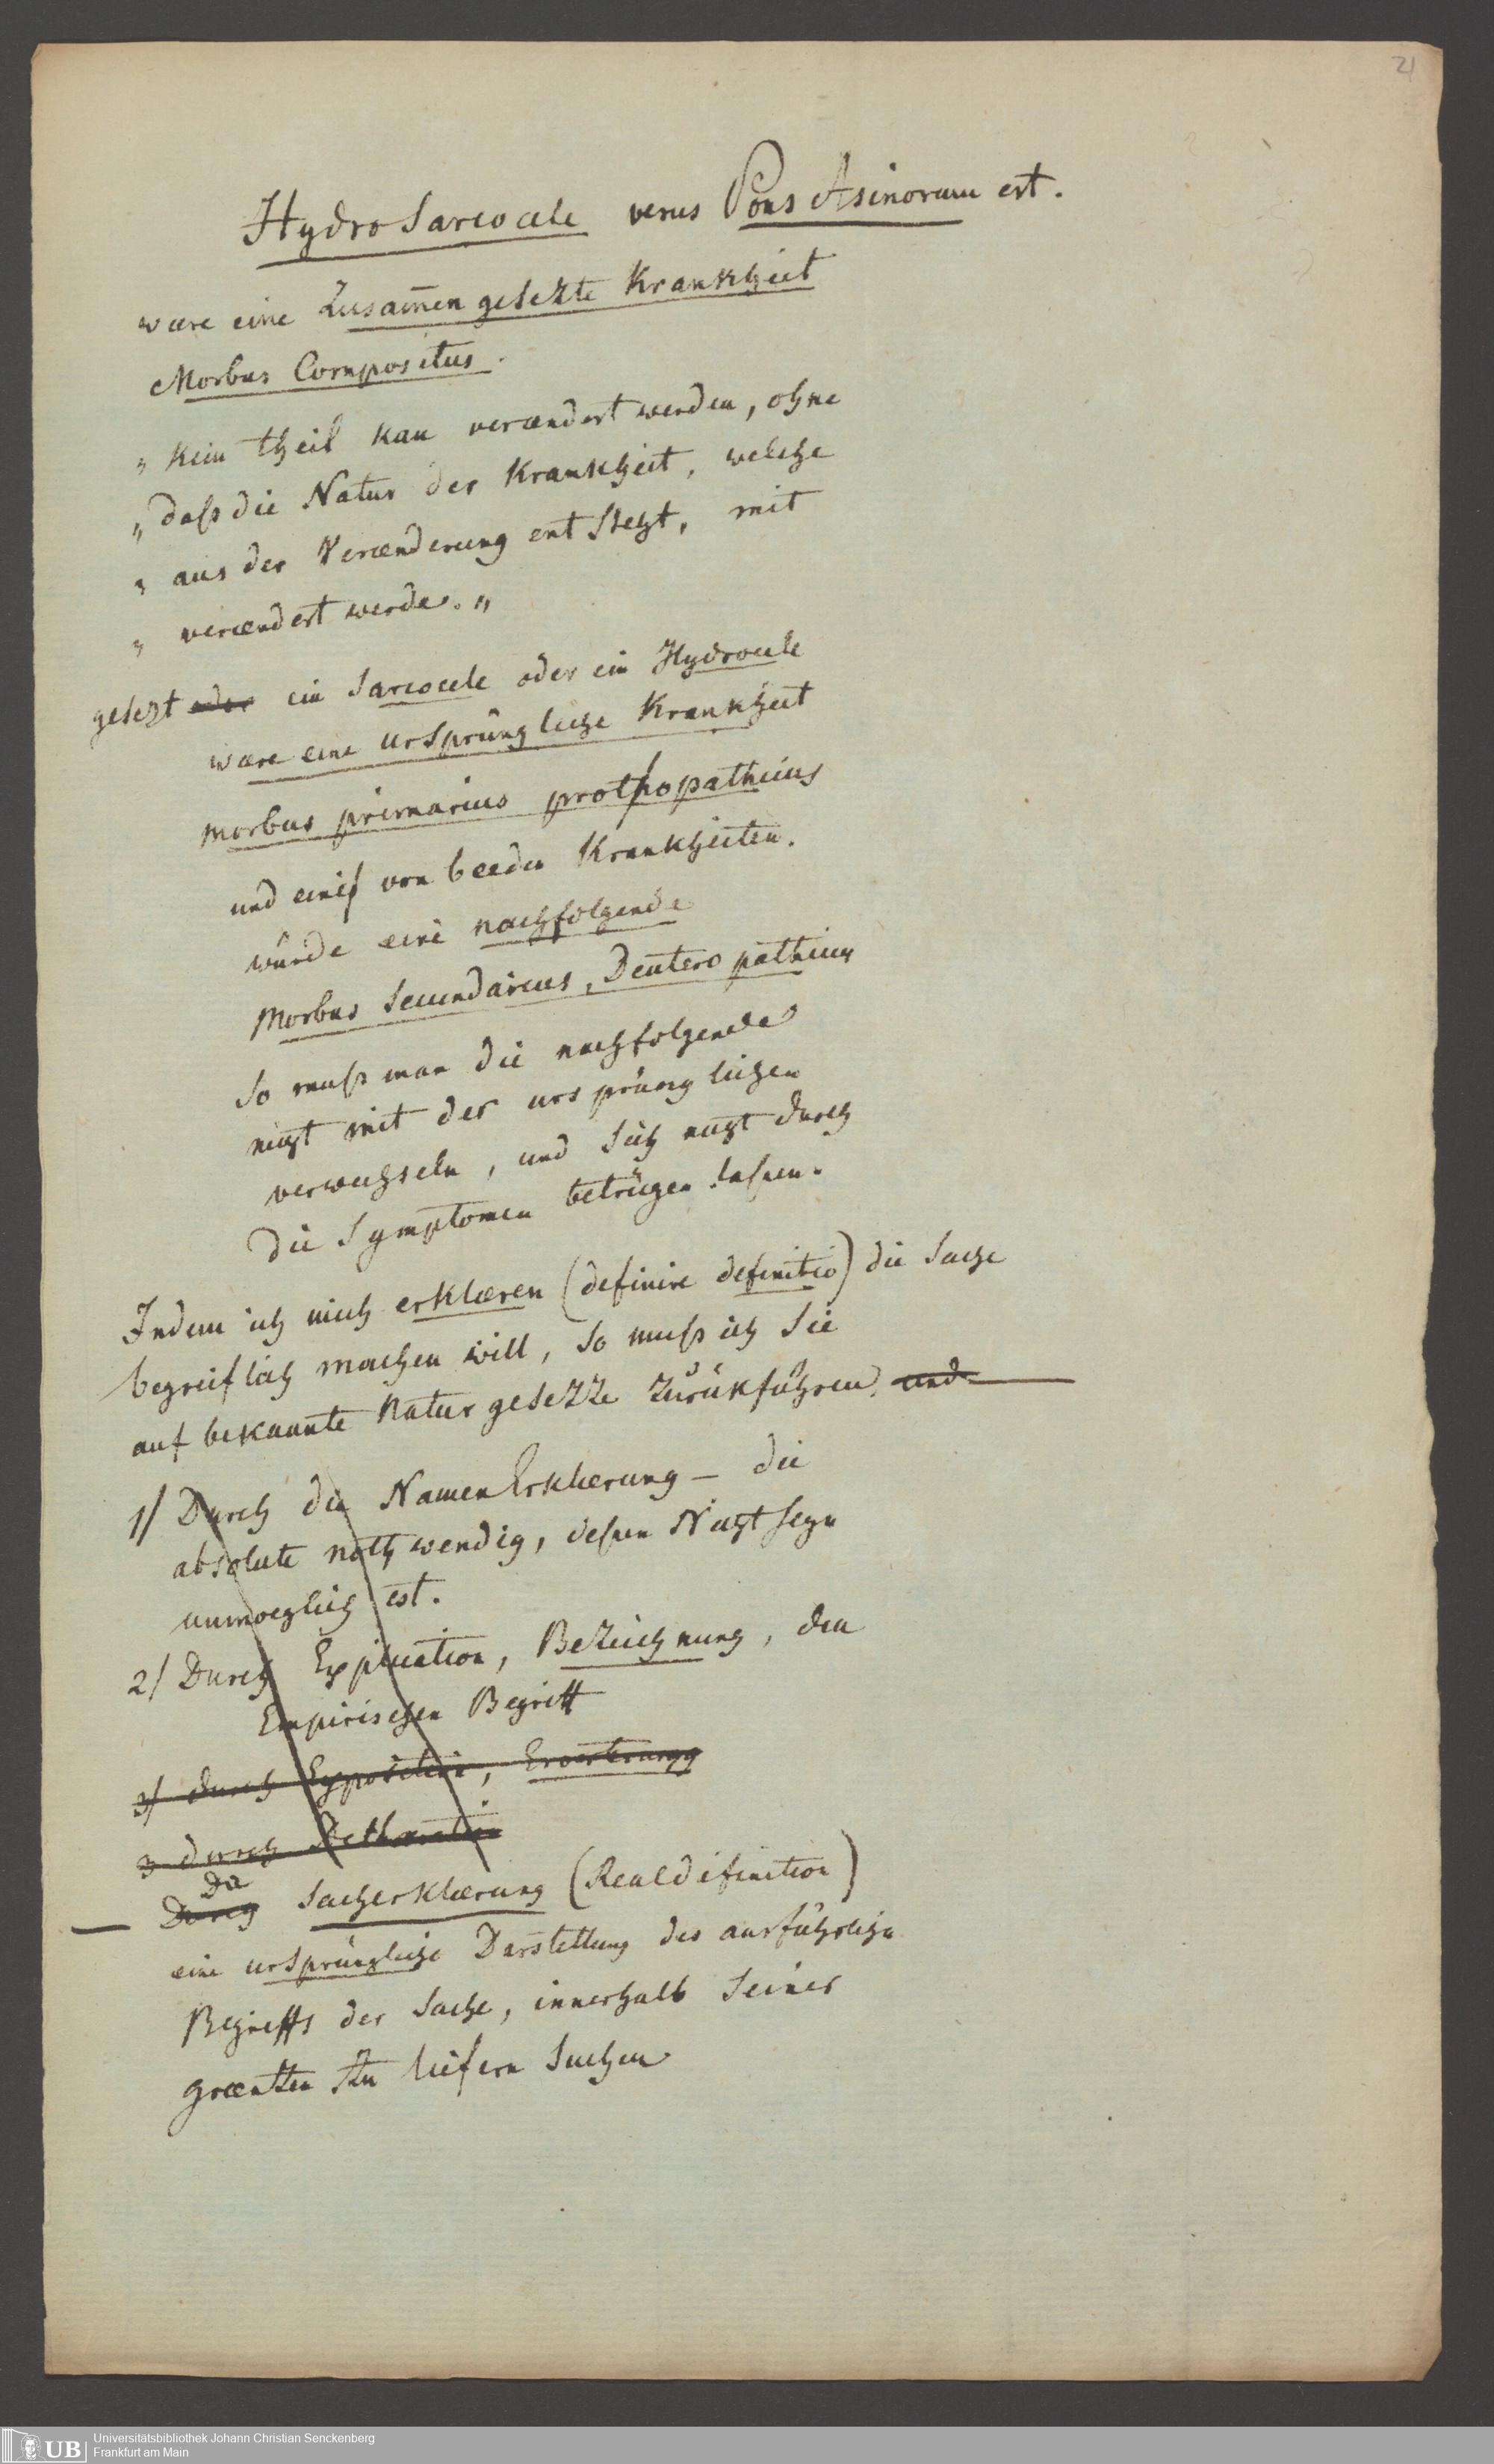 21
HydroSarcocele verus Pons Asinorum est.
wære eine Zusam̄en gesezte Krankheit
Morbus Compositus.
„ Kein theil kan verændert werden, ohne
„ daß die Natur der Krankheit, welche
„ aus der Verænderung entSteht, mit
„ verændert werde. „
gesezt oder ein Sarcocele oder ein Hydrocele
wære eine urSprüngliche Krankheit
Morbus primarius prothopathicus
und eins von beeden Krankheiten.
würde eine nachfolgende
Morbus Secundarius, Deuteropathicus
So muß man die nachfolgende
nicht mit der ursprünglichen
verwechseln, und Sich nicht durch
die Symptomen betrügen laßen.
Indem ich mich erklæren (definire definitio) die Sache
begreiflich machen will, So muß ich Sie
auf bekannte Naturgesezze zurükführen. und
1/ Durch die NamenErklærung – die
absolute nothwendig, deßen Nichtseyn
unmoeglich ist.
2/ Durch Explication, Bezeichnung, den
Empirischen Begriff
3/ durch Exposition, Eroerterung
3 durch Declaration
Die
— Durch Sacherklærung (Realdifinition)
eine urSprüngliche Darstellung des ausführlichen
Begriffs der Sache, innerhalb Seiner
grænzen zu liefern Suchen
UB
Universitätsbibliothek Johann Christian Senckenberg
Frankfurt am Main